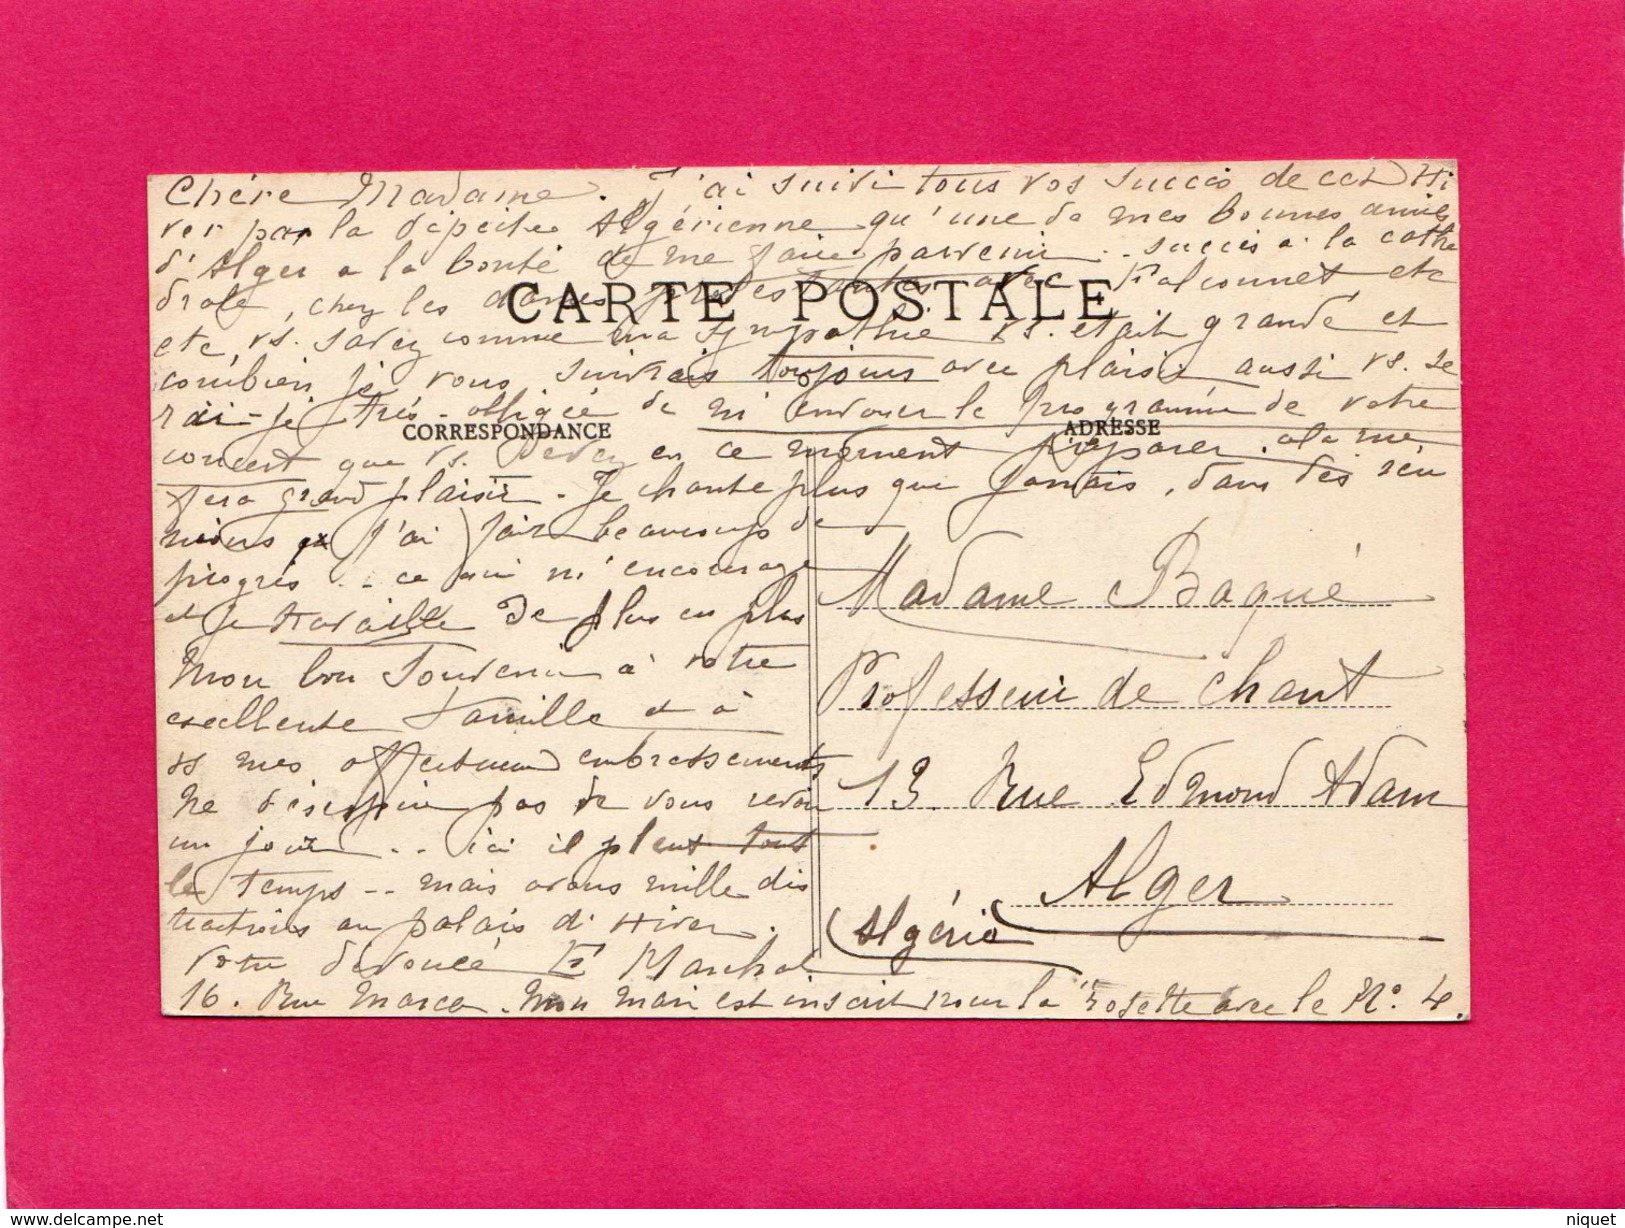 Chère Madame. J'ai suivi tous vos succès de cet Hi
ver par la dépêche Algérienne qu'une de mes bonnes amies
d'Alger a la bonté de me faire parvenir .. succès à la cathé
drale, chez les dames protestantes avec Falconnet etc
CARTE POSTALE
etc, vs. savez comme ma sympathie vs. était grande et
combien je vous suivrais toujours avec plaisir aussi vs. se
rai-je très-obligée de m'envoyer le programme de votre
CORRESPONDANCE
ADRESSE
concert que vs. devez en ce moment préparer. cela me
fera grand plaisir. Je chante plus que jamais, dans des réu
nions j'ai fait beaucoup de
progrès .. ce qui m'encourage
et je travaille de plus en plus
Mon bon souvenir à votre
excellente famille et à
vs mes affectueux embrassements
Ne désespère pas de vous revoir
un jour .. ici il pleut tout
le temps .. mais avons mille dis
tractions au palais d'Hiver.
Votre dévouée Marchal
16. Rue Marca. Mon mari est inscrit pour la rosette avec le No. 4.
Madame Baqué
Professeur de chant
13. Rue Edmond Adam
Alger
(Algérie
niquet